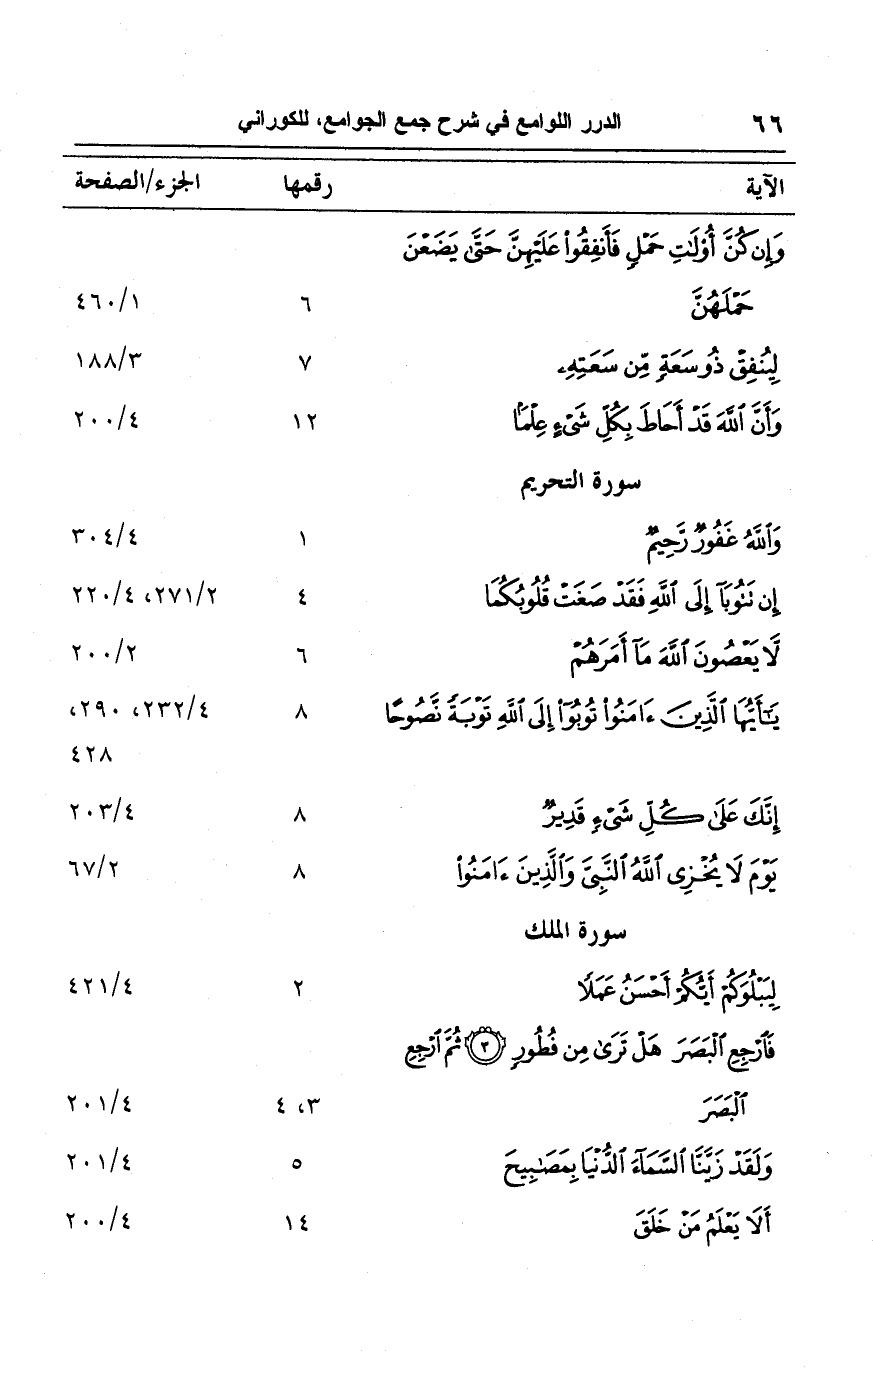 ٦٦ الدرر اللوامع في شرح جمع الجوامع، للكوراني
الآية رقمها الجزء/الصفحة
وَإِن كُنَّ أُوْلَٰتِ حَمْلٍ فَأَنفِقُواْ عَلَيْهِنَّ حَتَّىٰ يَضَعْنَ
حَمْلَهُنَّ ٦ ٤٦٠/١
لِيُنفِقْ ذُو سَعَةٍ مِّن سَعَتِهِۦ ٧ ١٨٨/٣
وَأَنَّ ٱللَّهَ قَدْ أَحَاطَ بِكُلِّ شَىْءٍ عِلْمًا ١٢ ٢٠٠/٤
سورة التحريم
وَٱللَّهُ غَفُورٌ رَّحِيمٌ ١ ٣٠٤/٤
إِن تَتُوبَآ إِلَى ٱللَّهِ فَقَدْ صَغَتْ قُلُوبُكُمَا ٤ ٢٧١/٢، ٢٢٠/٤
لَّا يَعْصُونَ ٱللَّهَ مَآ أَمَرَهُمْ ٦ ٢٠٠/٢
يَٰٓأَيُّهَا ٱلَّذِينَ ءَامَنُواْ تُوبُوٓاْ إِلَى ٱللَّهِ تَوْبَةً نَّصُوحًا ٨ ٢٣٢/٤، ٢٩٠،
٤٢٨
إِنَّكَ عَلَىٰ كُلِّ شَىْءٍ قَدِيرٌ ٨ ٢٠٣/٤
يَوْمَ لَا يُخْزِى ٱللَّهُ ٱلنَّبِىَّ وَٱلَّذِينَ ءَامَنُواْ ٨ ٦٧/٢
سورة الملك
لِيَبْلُوَكُمْ أَيُّكُمْ أَحْسَنُ عَمَلًا ٢ ٤٢١/٤
فَٱرْجِعِ ٱلْبَصَرَ هَلْ تَرَىٰ مِن فُطُورٍ ٣ ثُمَّ ٱرْجِعِ
ٱلْبَصَرَ ٣، ٤ ٢٠١/٤
وَلَقَدْ زَيَّنَّا ٱلسَّمَآءَ ٱلدُّنْيَا بِمَصَٰبِيحَ ٥ ٢٠١/٤
أَلَا يَعْلَمُ مَنْ خَلَقَ ١٤ ٢٠٠/٤